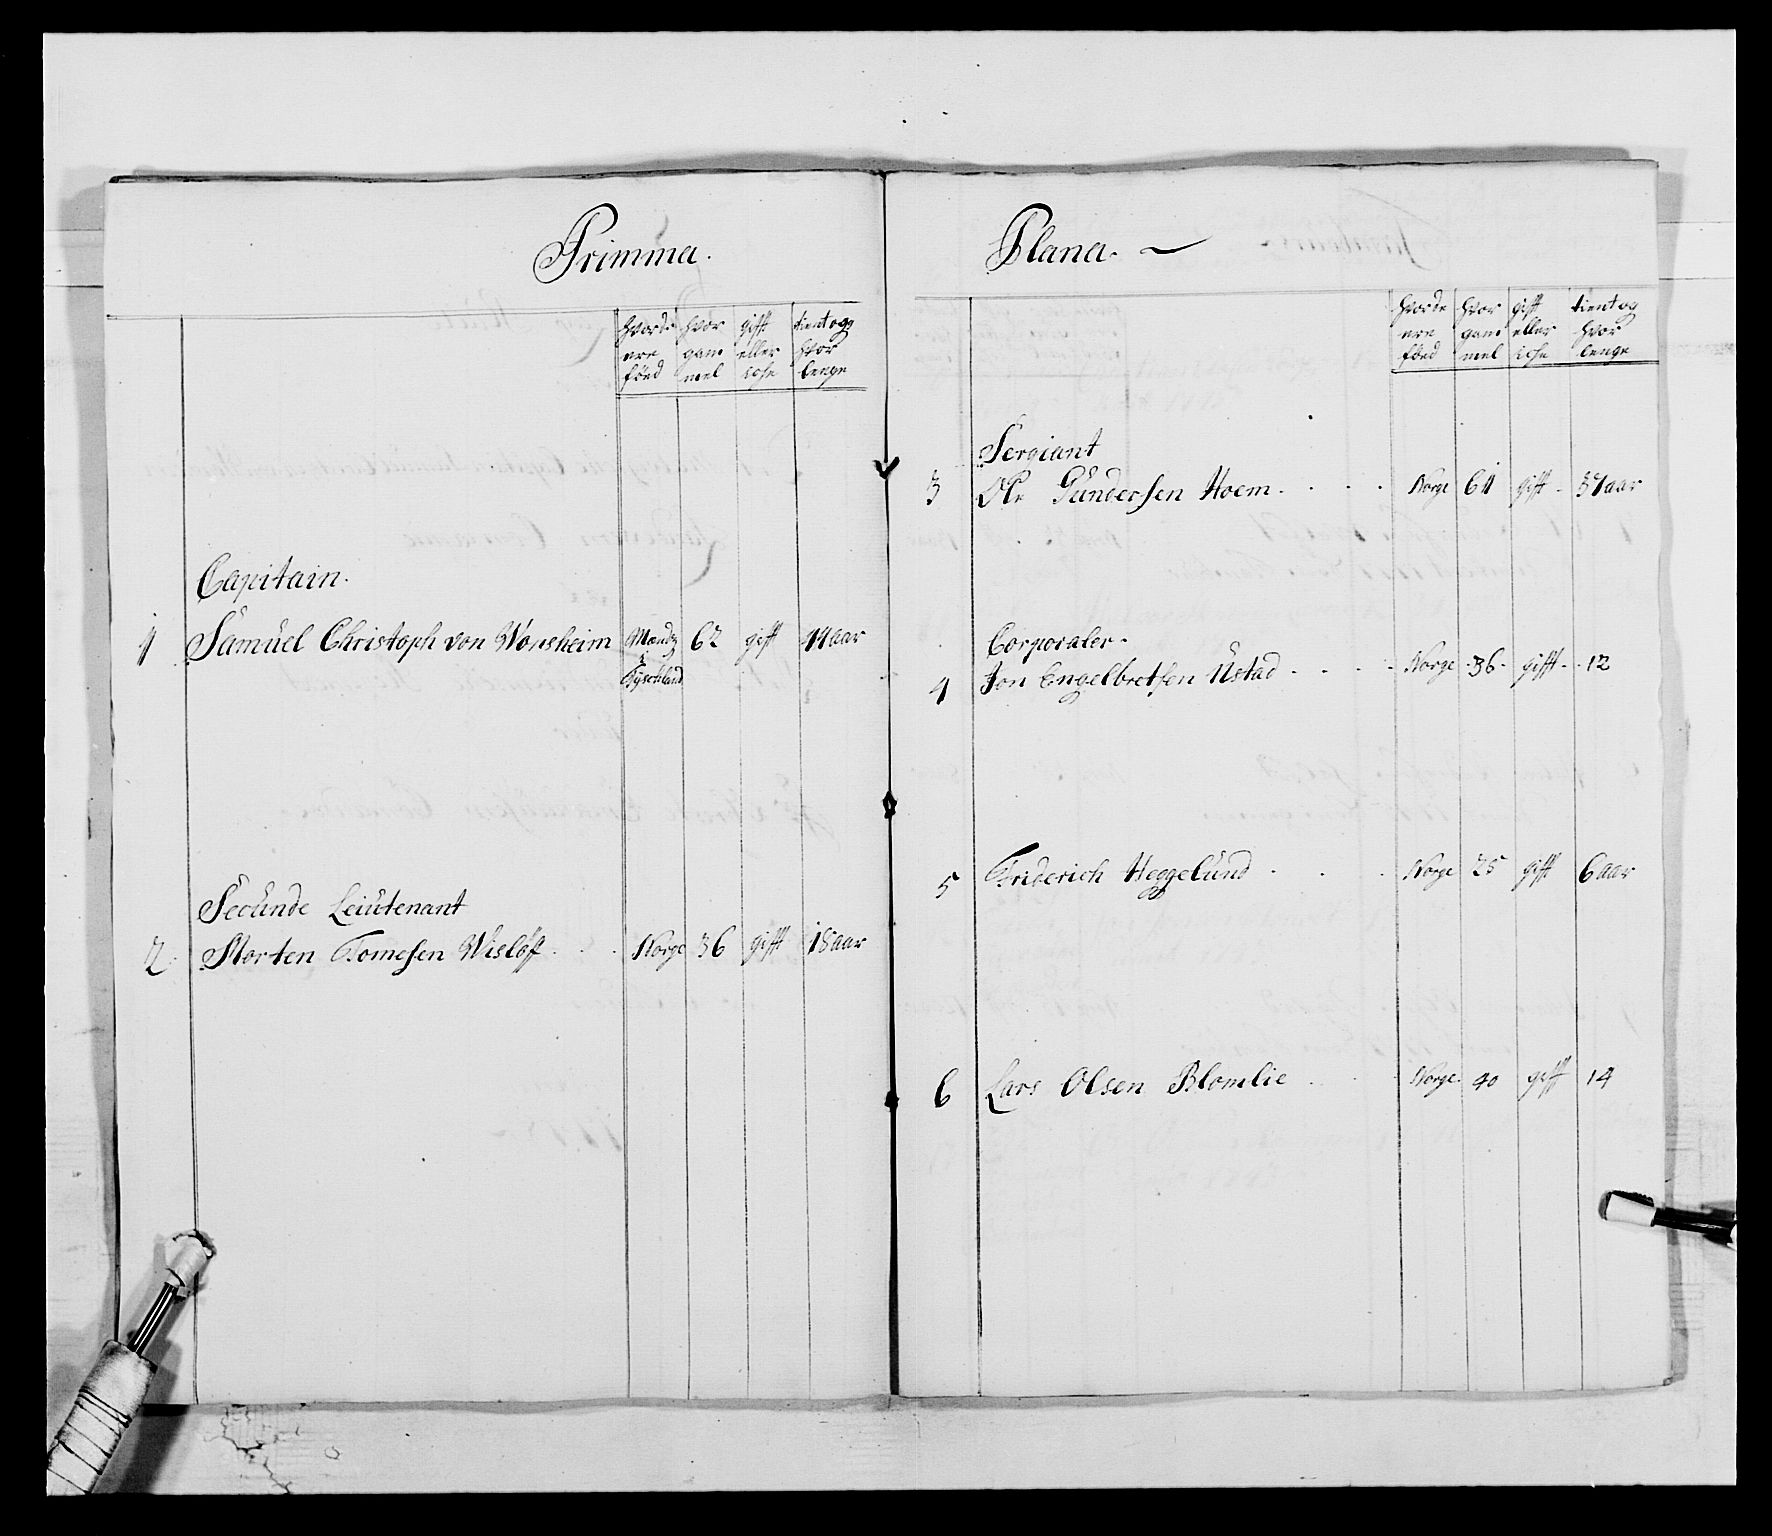 Primma.
hvorde ere föed | hvor gam mel | gifft eller iche | tient og hvor lenge
Capitain.
1 Samuel Christoph von Wonsheim | Mendz i Tyschland | 62 | gifft | 44 aar
Secunde Leiutenant
2. Morten Tomesen Wislöff . . . | Norge | 36 | gifft | 18 aar
Plana. ~
hvorde ere föed | hvor gam mel | gifft eller iche | tient og hvor lenge
Sergiant
3 Ole Gundersen Hoem. . . . | Norge | 61 | gifft . | 37 aar
Corporaler.
4 Jon Engelbretsen Ustad . . . . | Norge | 36 | gifft | 12
5 Friderich Heggelund . . . | Norge | 25 | gifft | 6 aar
6 Lars Olsen Blomlie . . . | Norge. | 40 | gifft | 14